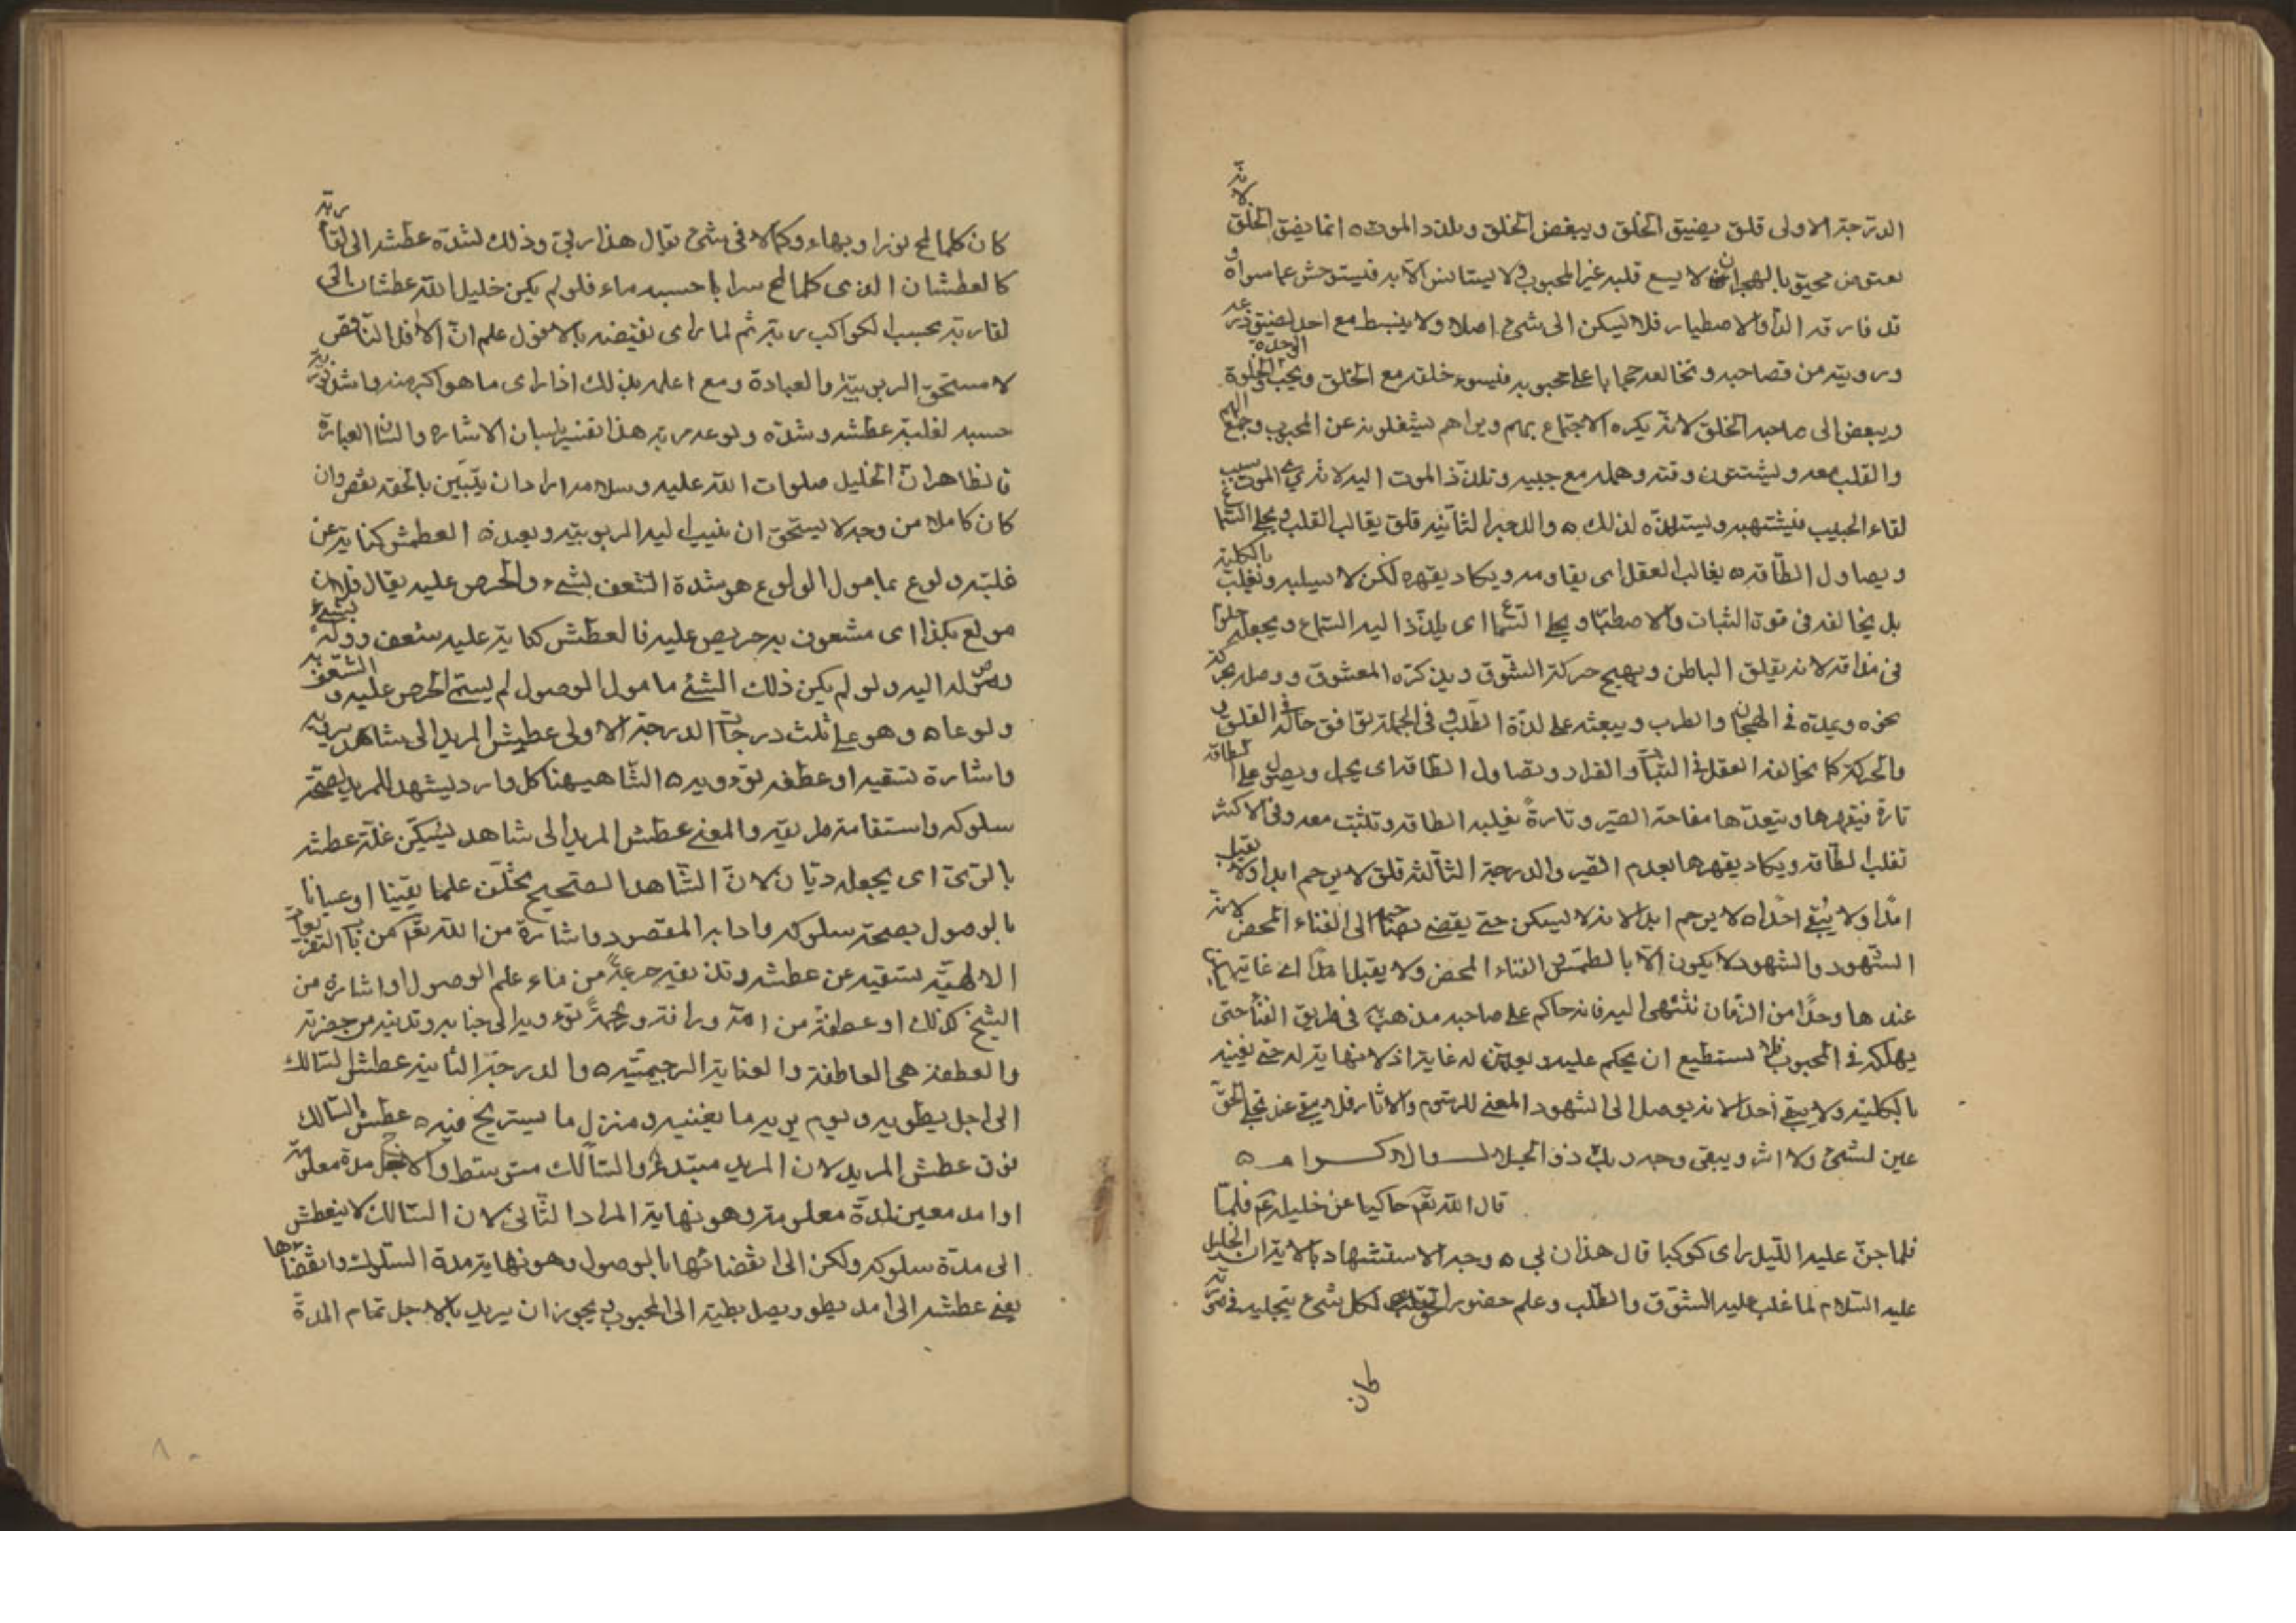 الدرجة الاولى قلق يضيق الخلق ويبغض الخلق ويلذذ الموت ه انما يضيق الخلق لانه
لا يسع قلبه غير المحبوب ولا يستانس الا به فيستوحش عما سواه و
قد فارقه والاصطبار فلا يسكن الى شيء اصلا ولا ينبسط مع احد لضيق
وروية من حجابا على محبوبه فيسوء خلقه مع الخلق ويحب الخلوة الوحدة
ويبغض الى صاحبه الخلق لانه يكره الاجتماع بهم ويراهم يشغلونه عن المحبوب وجمع الهم
والقلب معه ويشتتون وقته وهمه مع حبيبه وتلذذ الموت اليه لانه يرى الموت سبب
لقاء الحبيب فيشتهيه ويستلذه لذلك ه والدرجة الثانية قلق يغالب العقل ويحلي السماع
ويصاول الطاقة ه يغالب العقل اى يقاومه ويكاد يقهره لكن لا يسلبه ويغلب بالكلية
بل يخالفه فى قوة الثبات والاصطبار ويحلي السماع اى يلذذ اليه السماع ويجعله حلوا
فى مذاقه لانه يقلق الباطن ويهيج حركة الشوق ويذكره المعشوق ووصله
نحوه ويمده فى الهيجان والطرب ويبعثه على لذة الطلب فى الجملة توافق حاله فى القلق
والحركة كما يخالفه العقل فى الثبات والقرار ويصاول الطاقة اى يحمل ويصول على الطاقة
تارة فيقهرها ويتعدها الصبر وتارة يغلبه الطاقة وتثبت معه وفى الاكثر
تغلب الطاقة ويكاد يقهرها بعدم الصبر والدرجة الثالثة قلق لا يرحم ابدا ولا يقبل
امدا ولا يبقي احدا ه لا يرحم ابدا لانه لا يسكن حتى يفضى بصاحبه الى الفناء المحض لانه
الشهود والشهود لا يكون الا بالطمس الفناء المحض ولا يقبل امدا اى غاية
عندها وحدا من الزمان تنتهى اليه فانه حاكم على صاحبه مذهبه فى طريق الفنا حتى
يهلكه فى المحبوب فلا يستطيع ان يحكم عليه له غاية اذ لا نهاية له حتى يفنيه
بالكلية ولا يبقي احدا لانه يوصل الى الشهود المفنى للرسوم والاثار فلا يبقى عند تجلى الحق
عين لشيء ولا اثر ويبقى وجه ربك ذو الجلال والاكرام ه
قال الله تعم حاكيا عن خليله عم فلما
فلما جن عليه الليل راى كوكبا قال هذا ربى ه وجه الاستشهاد بالاية ان الخليل
عليه السلام لما غلب عليه الشوق والطلب وعلم حضور الحق لكل شيء
كان
كان كلما لمح نورا وبهاء وكمالا فى شيء يقال هذا ربى وذلك لشدة عطشه الى لقا ربه
كالعطشان الذى كلما لمح سرابا حسبه ماء فلو لم يكن خليل الله عطشان الى
لقا ربه بحسب الكواكب ربه ثم لما راى نقيضه بالافول علم ان الافل الناقص
لا يستحق الربوبية والعبادة ومع علمه بذلك اذا راى ما هو اكبر منه واشد نورا
حسبه لغلبة عطشه وشدة ولوعه ربه هذا تفسير بلسان الاشارة واللسان العبارة
فالظاهر ان الخليل صلوات الله عليه وسلامه اراد ان يتبين بالحقه نقص وان
كان كاملا من وجه لا يستحق ان ينسب اليه الربوبية وبعده العطش كناية عن
غلبة ولوع بمامول الولوع هو شدة الشعف بشيء والحرص عليه يقال فلان
مولع بكذا اى مشعوف به حريص عليه فالعطش كناية عليه شعف وولع بشيء
اليه ولو لم يكن ذلك الشئ مامول الوصول لم يستم الحرص عليه و الشعف به
ولوعا ه وهو على ثلث درجات الدرجة الاولى عطش المريد الى شاهد يرويه
واشارة تسقيه او عطفه تؤويه ه الشاهد ههنا كل وارد يشهد المريد بصحة
سلوكه واستقامة طريقه والمعنى عطش المريد الى شاهد يسكن غلة عطشه
بالرى اى يجعله ريان لان الشاهد الصحيح يخلف علما يقينا او عيانا
بالوصول بصحة سلوكه وادابه المقصود واشارة من الله تعم من
الالهية تسقيه عن عطشه وتذيقه جرعة من ماء علم الوصول او اشارة من
الشيخ كذلك او عطفة من الله ورافة ورحمة تؤويه الى جنابه وتدنيه من حضرته
والعطفة هى العاطفة والعناية الرحيمية ه والدرجة الثانية عطش السالك
الى اجل يطويه ويوم يريه ما يغنيه ومنزل ما يستريح فيه ه عطش السالك
فوق عطش المريد لان المريد مبتدئ والسالك متوسط والاجل مدة معلومة
او امد معين لمدة معلومة وهو نهاية المراد الثانى لان السالك لا يعطش
الى مدة سلوكه ولكن الى انقضائها بالوصول وهو نهاية مدة السلوك وانقضاؤها
يعنى عطشه الى امد يطو ويصل بطيه الى المحبوب ويجوز ان يريد بالاجل تمام المدة